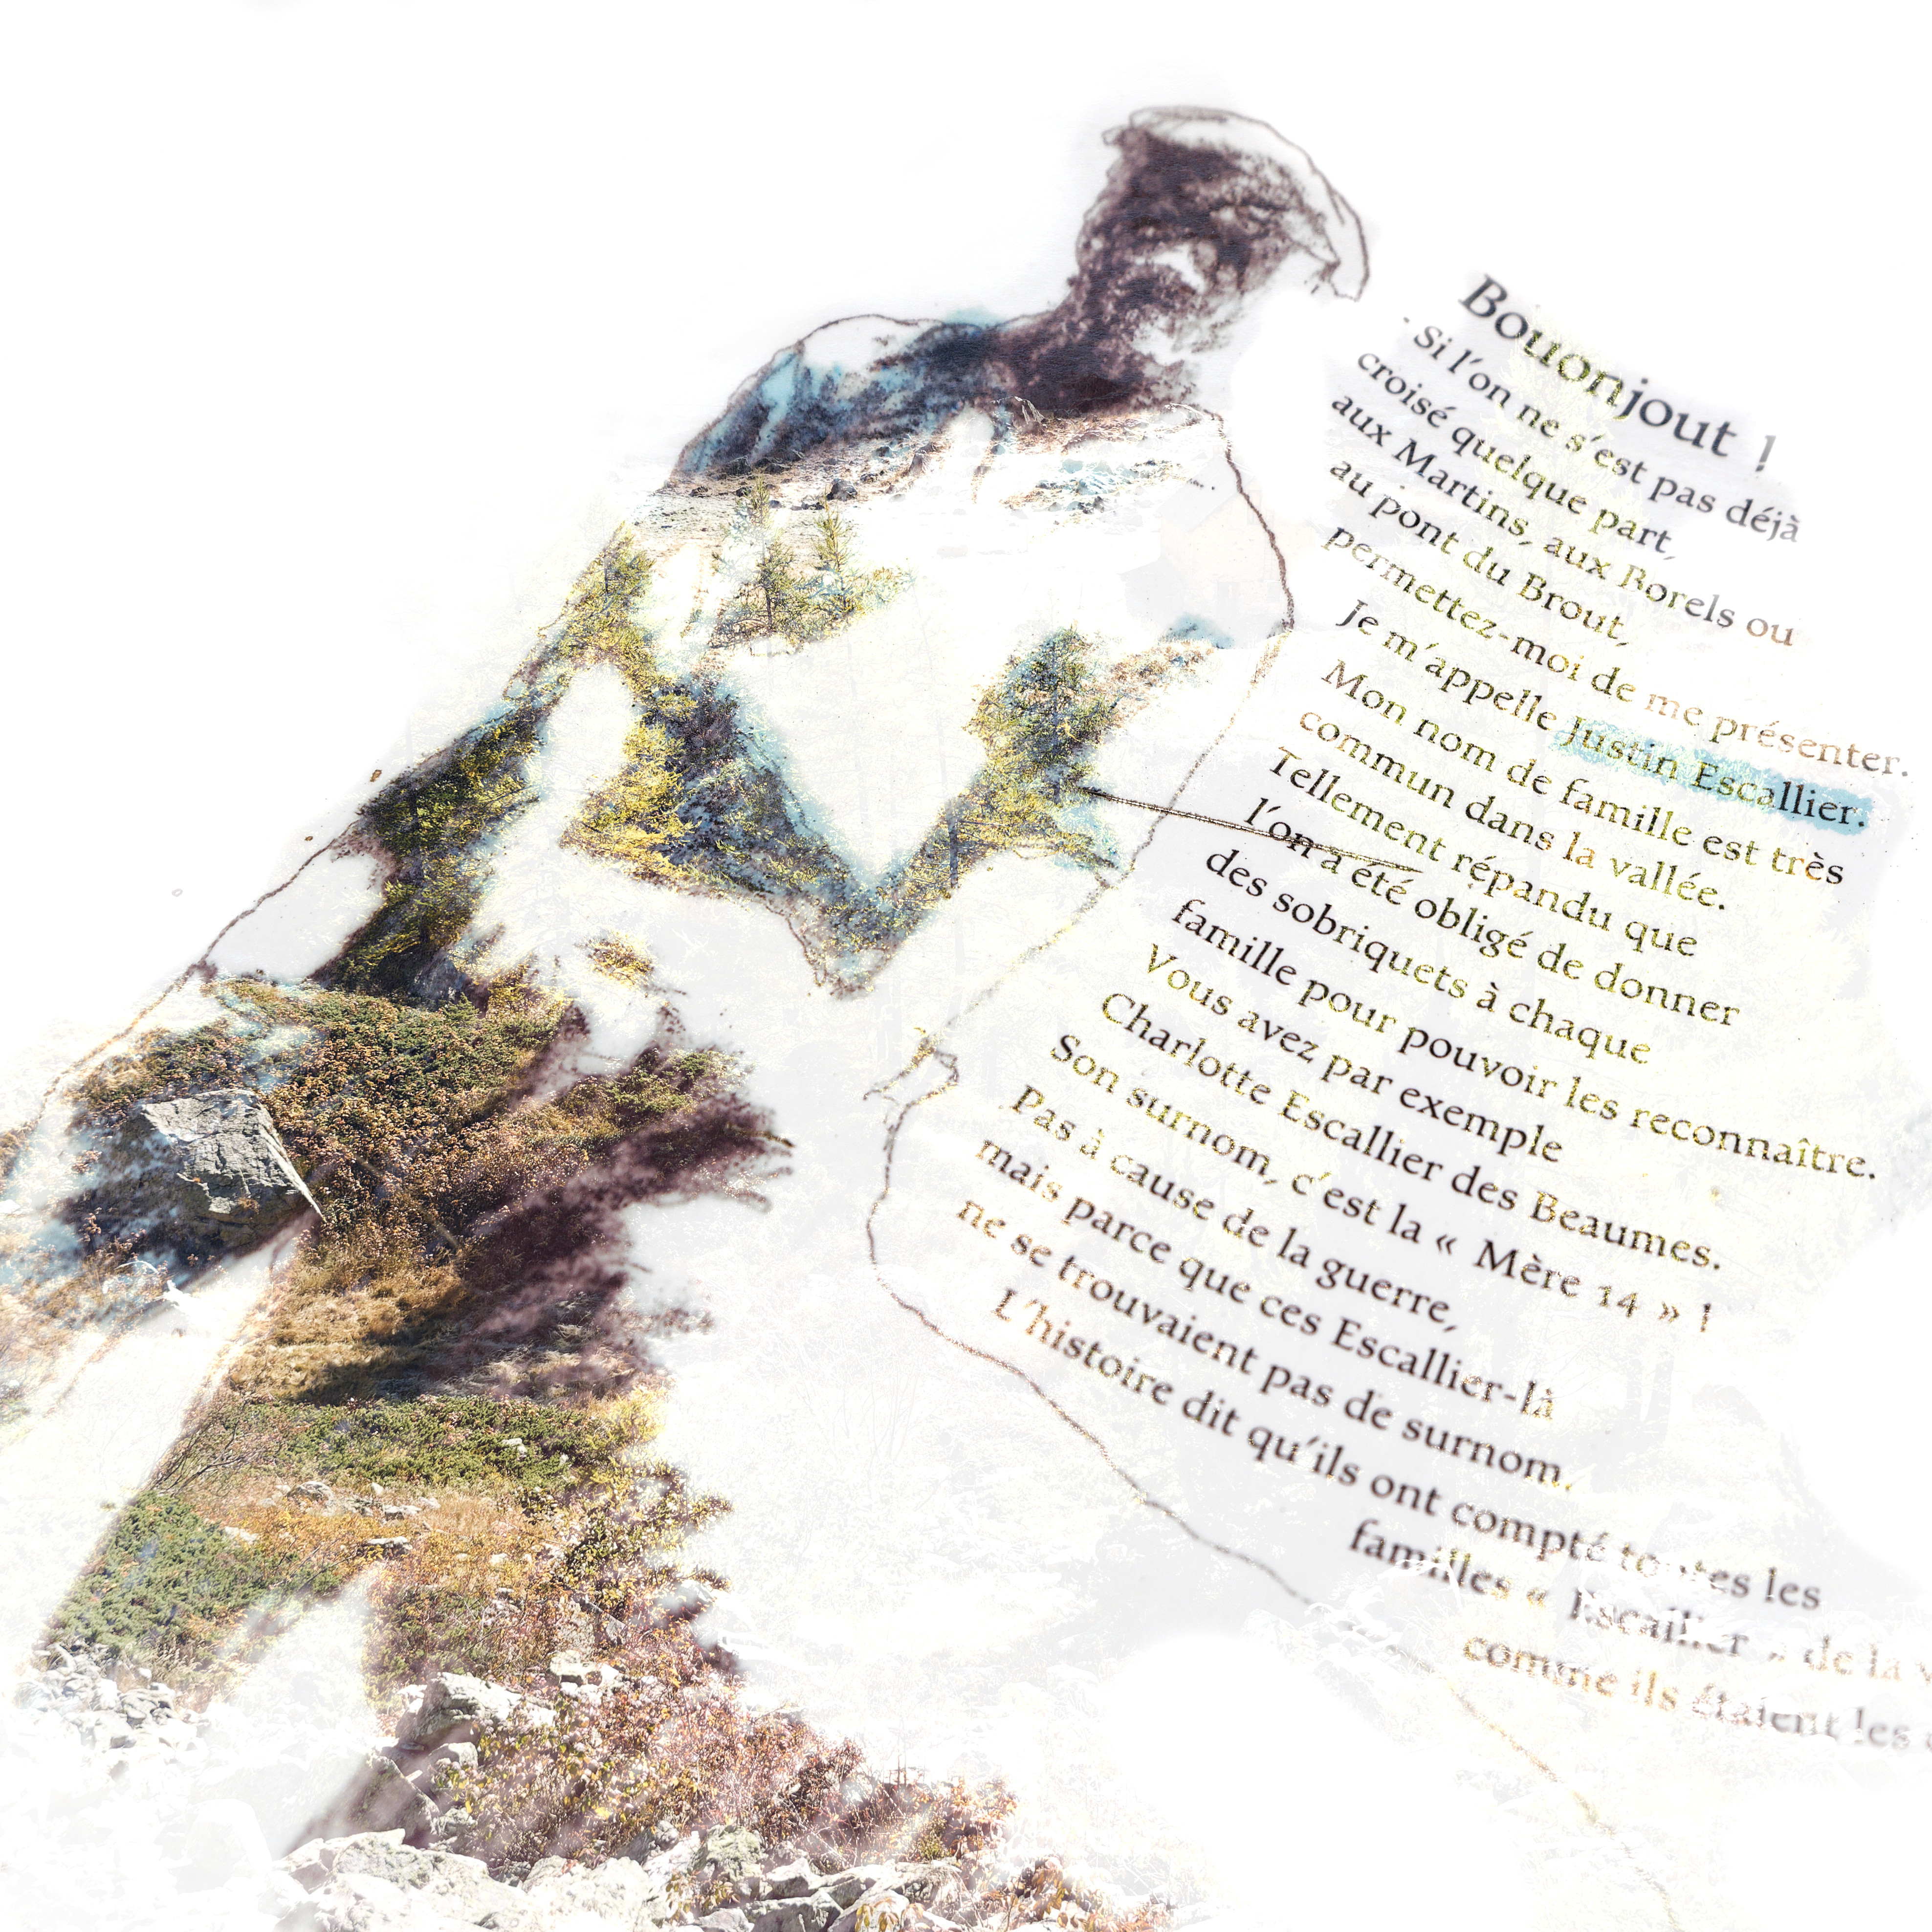 Bouonjout !
Si l'on ne s'est pas déjà
croisé quelque part,
aux Martins, aux Borels ou
au pont du Brout,
permettez-moi de me présenter.
Je m'appelle Justin Escallier.
Mon nom de famille est très
commun dans la vallée.
Tellement répandu que
l'on a été obligé de donner
des sobriquets à chaque
famille pour pouvoir les reconnaître.
Vous avez par exemple
Charlotte Escallier des Beaumes.
Son surnom, c'est la « Mère 14 » !
Pas à cause de la guerre,
mais parce que ces Escallier-là
ne se trouvaient pas de surnom.
L'histoire dit qu'ils ont compté toutes les
familles « Escallier » de la
comme ils étaient les